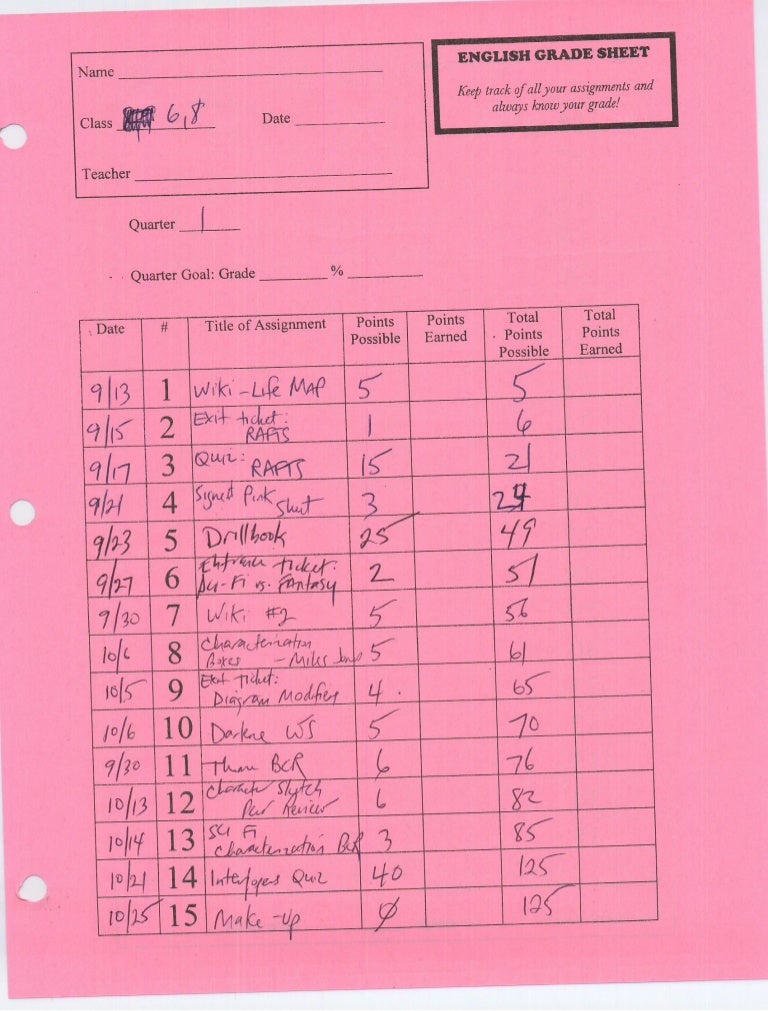 ENGLISH GRADE SHEET
Keep track of all your assignments and
always know your grade!
Name
Class 6,8 Date
Teacher
Quarter 1
Quarter Goal: Grade %
Date # Title of Assignment Points Possible Points Earned Total Points Possible Total Points Earned
9/13 1 Wiki-Life MAP 5 5
9/15 2 Exit ticket: RAFTS 1 6
9/17 3 Quiz: RAFTS 15 21
9/21 4 Signed Pink Sheet 3 24
9/23 5 Drillbook 25 49
9/27 6 Entrance ticket: Sci-Fi vs. Fantasy 2 51
9/30 7 Wiki #2 5 56
10/6 8 Characterization Boxes - Miles 5 61
10/5 9 Exit Ticket: Diagram Modifiers 4 65
10/6 10 WS 5 70
9/30 11 BCR 6 76
10/13 12 Character Sketch Peer Review 6 82
10/14 13 Sci Fi Characterization BCR 3 85
10/21 14 Interlopers Quiz 40 125
10/25 15 Make-up 0 125